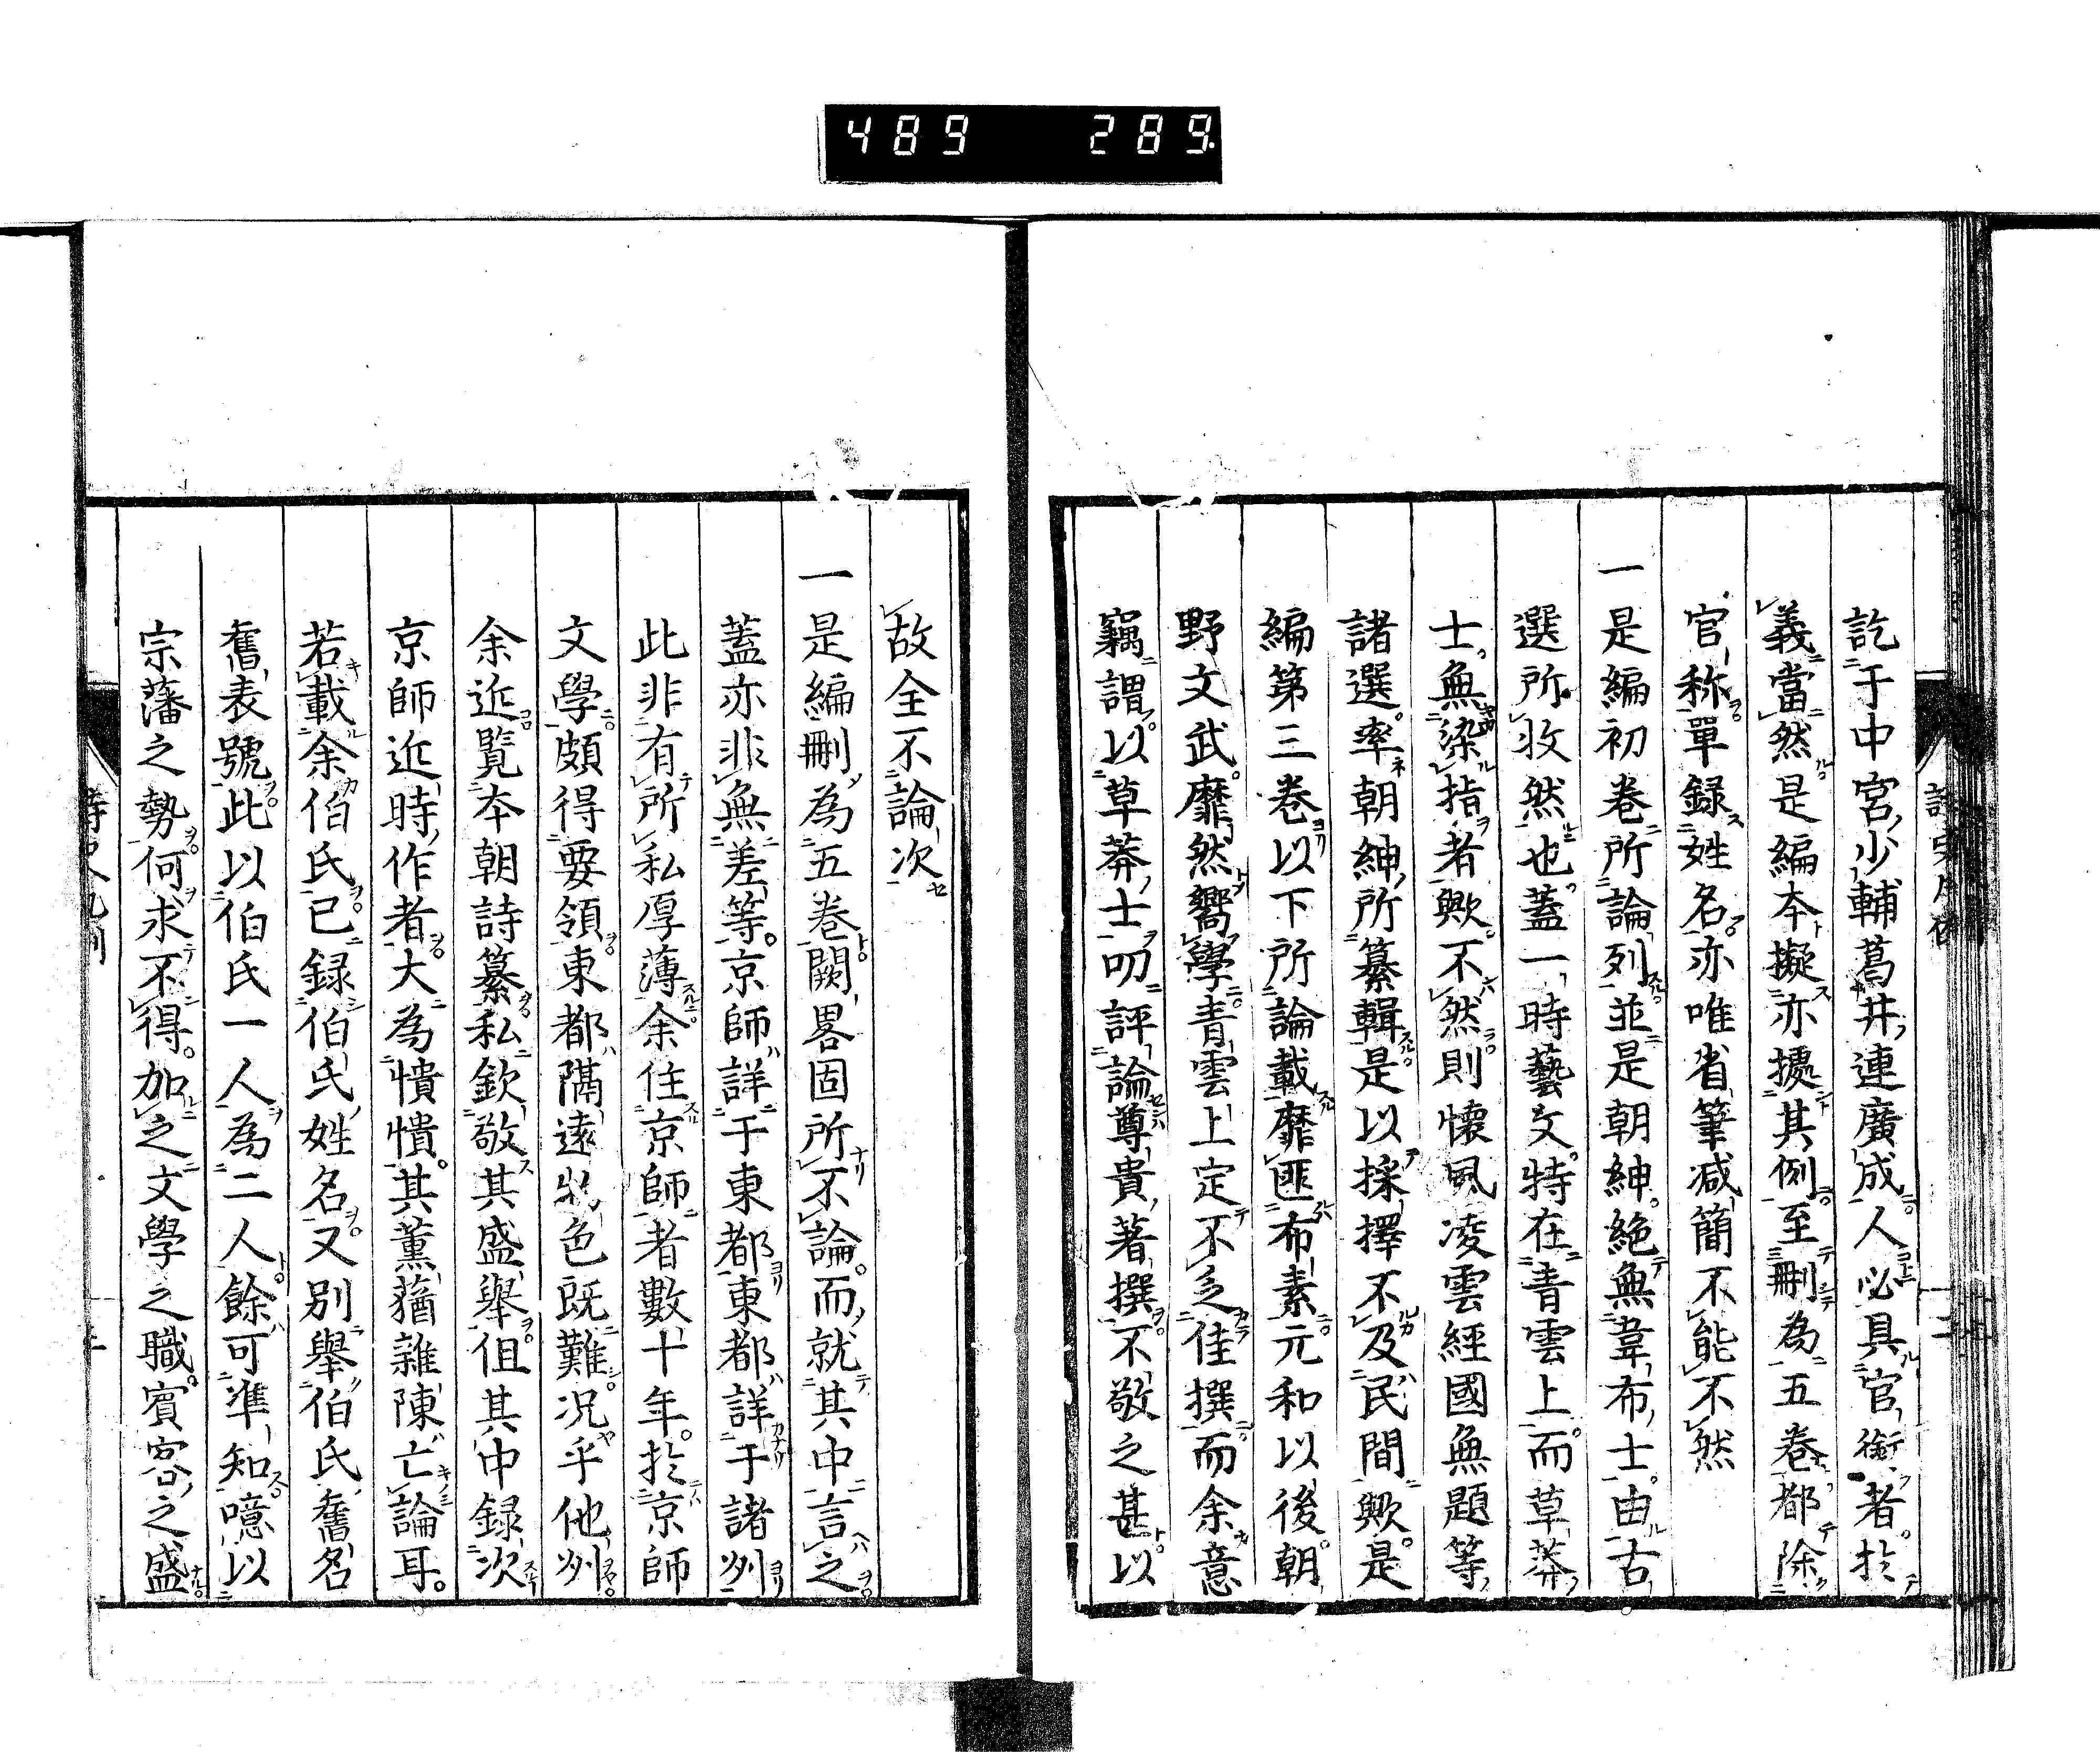 489 289
訖于中宮少輔葛井連廣成人必具官銜者於
義當然是編本擬亦攄其例至刪為五卷都除
官称單録姓名亦唯省筆减簡不能不然
一是編初卷所論列並是朝紳絶無韋布士由古
選所收然也蓋一時藝文特在青雲上而草莽
士無染指者歟不然則懷風凌雲經國無題等
諸選率朝紳所纂輯是以採擇不及民間歟是
編第三卷以下所論載靡匪布素元和以後朝
野文武靡然嚮學青雲上定不乏佳撰而余意
竊謂以草莽士叨評論尊貴著撰不敬之甚以
故全不論次
一是編刪為五卷闕畧固所不論而就其中言之
蓋亦非無差等京師詳于東都東都詳于諸州
此非有所私厚薄余住京師者數十年於京師
文學頗得要領東都隔遠物色既難况乎他州
余近覧本朝詩纂私欽敬其盛舉但其中録次
京師近時作者大為憒憒其薰蕕雜陳亡論耳
若載余伯氏已録伯氏姓名又別舉伯氏舊名
舊表號此以伯氏一人為二人餘可準知噫以
宗藩之勢何求不得加之文學之職賓客之盛